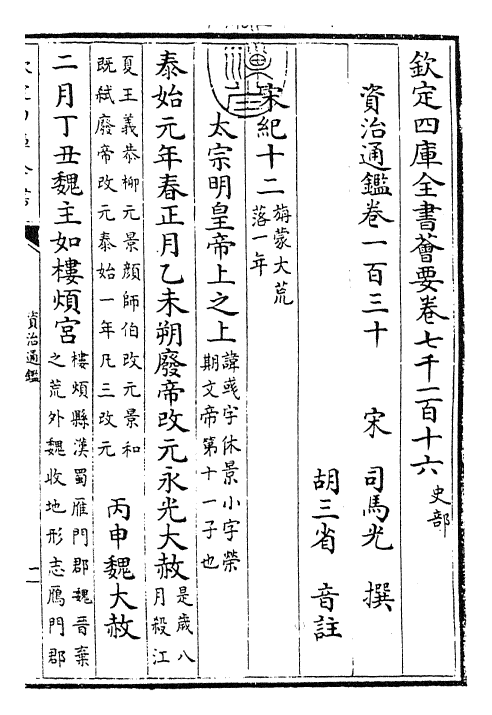 欽定四庫全書薈要卷七千二百十六 史部
資治通鑑卷一百三十 宋 司馬光 撰
胡三省 音註
宋紀十二 旃蒙大荒
落一年
太宗明皇帝上之上 諱彧字休景小字榮
期文帝第十一子也
泰始元年春正月乙未朔廢帝改元永光大赦 是歲八
月殺江
夏王義恭柳元景顏師伯改元景和
既弑廢帝改元泰始一年凡三改元
丙申魏大赦
二月丁丑魏主如樓煩宮 樓煩縣漢蜀雁門郡魏晉棄
之荒外魏收地形志鴈門郡
資治通鑑
一